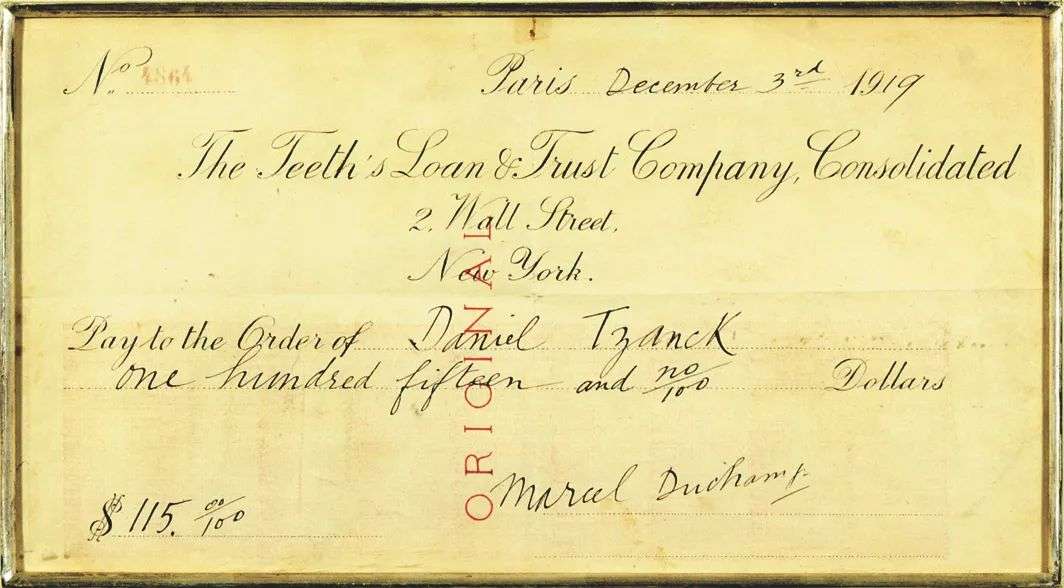 No. 4864
Paris December 3rd 1919
The Teeth's Loan & Trust Company, Consolidated
2, Wall Street.
New York.
Pay to the Order of Daniel Tzanck
one hundred fifteen and no/100 Dollars
Marcel Duchamp
$ 115. 00/100
ORIGINAL